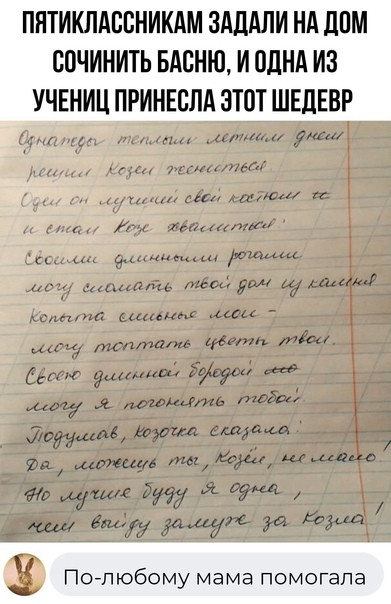 ПЯТИКЛАССНИКАМ ЗАДАЛИ НА ДОМ
СОЧИНИТЬ БАСНЮ, И ОДНА ИЗ
УЧЕНИЦ ПРИНЕСЛА ЭТОТ ШЕДЕВР
Однажды теплым летним днем
решил Козел жениться.
Одел он лучший свой костюм
и стал Козе хвалиться:
Своими длинными рогами
могу сломать твой дом из камня
Копыта сильные мои –
могу топтать цветы твои.
Своею длинной бородой
могу я погонять тобой.
Подумав, Козочка сказала:
Да, можешь ты, Козёл, не мало!
Но лучше буду я одна,
чем выйду замуж за Козла!
По-любому мама помогала